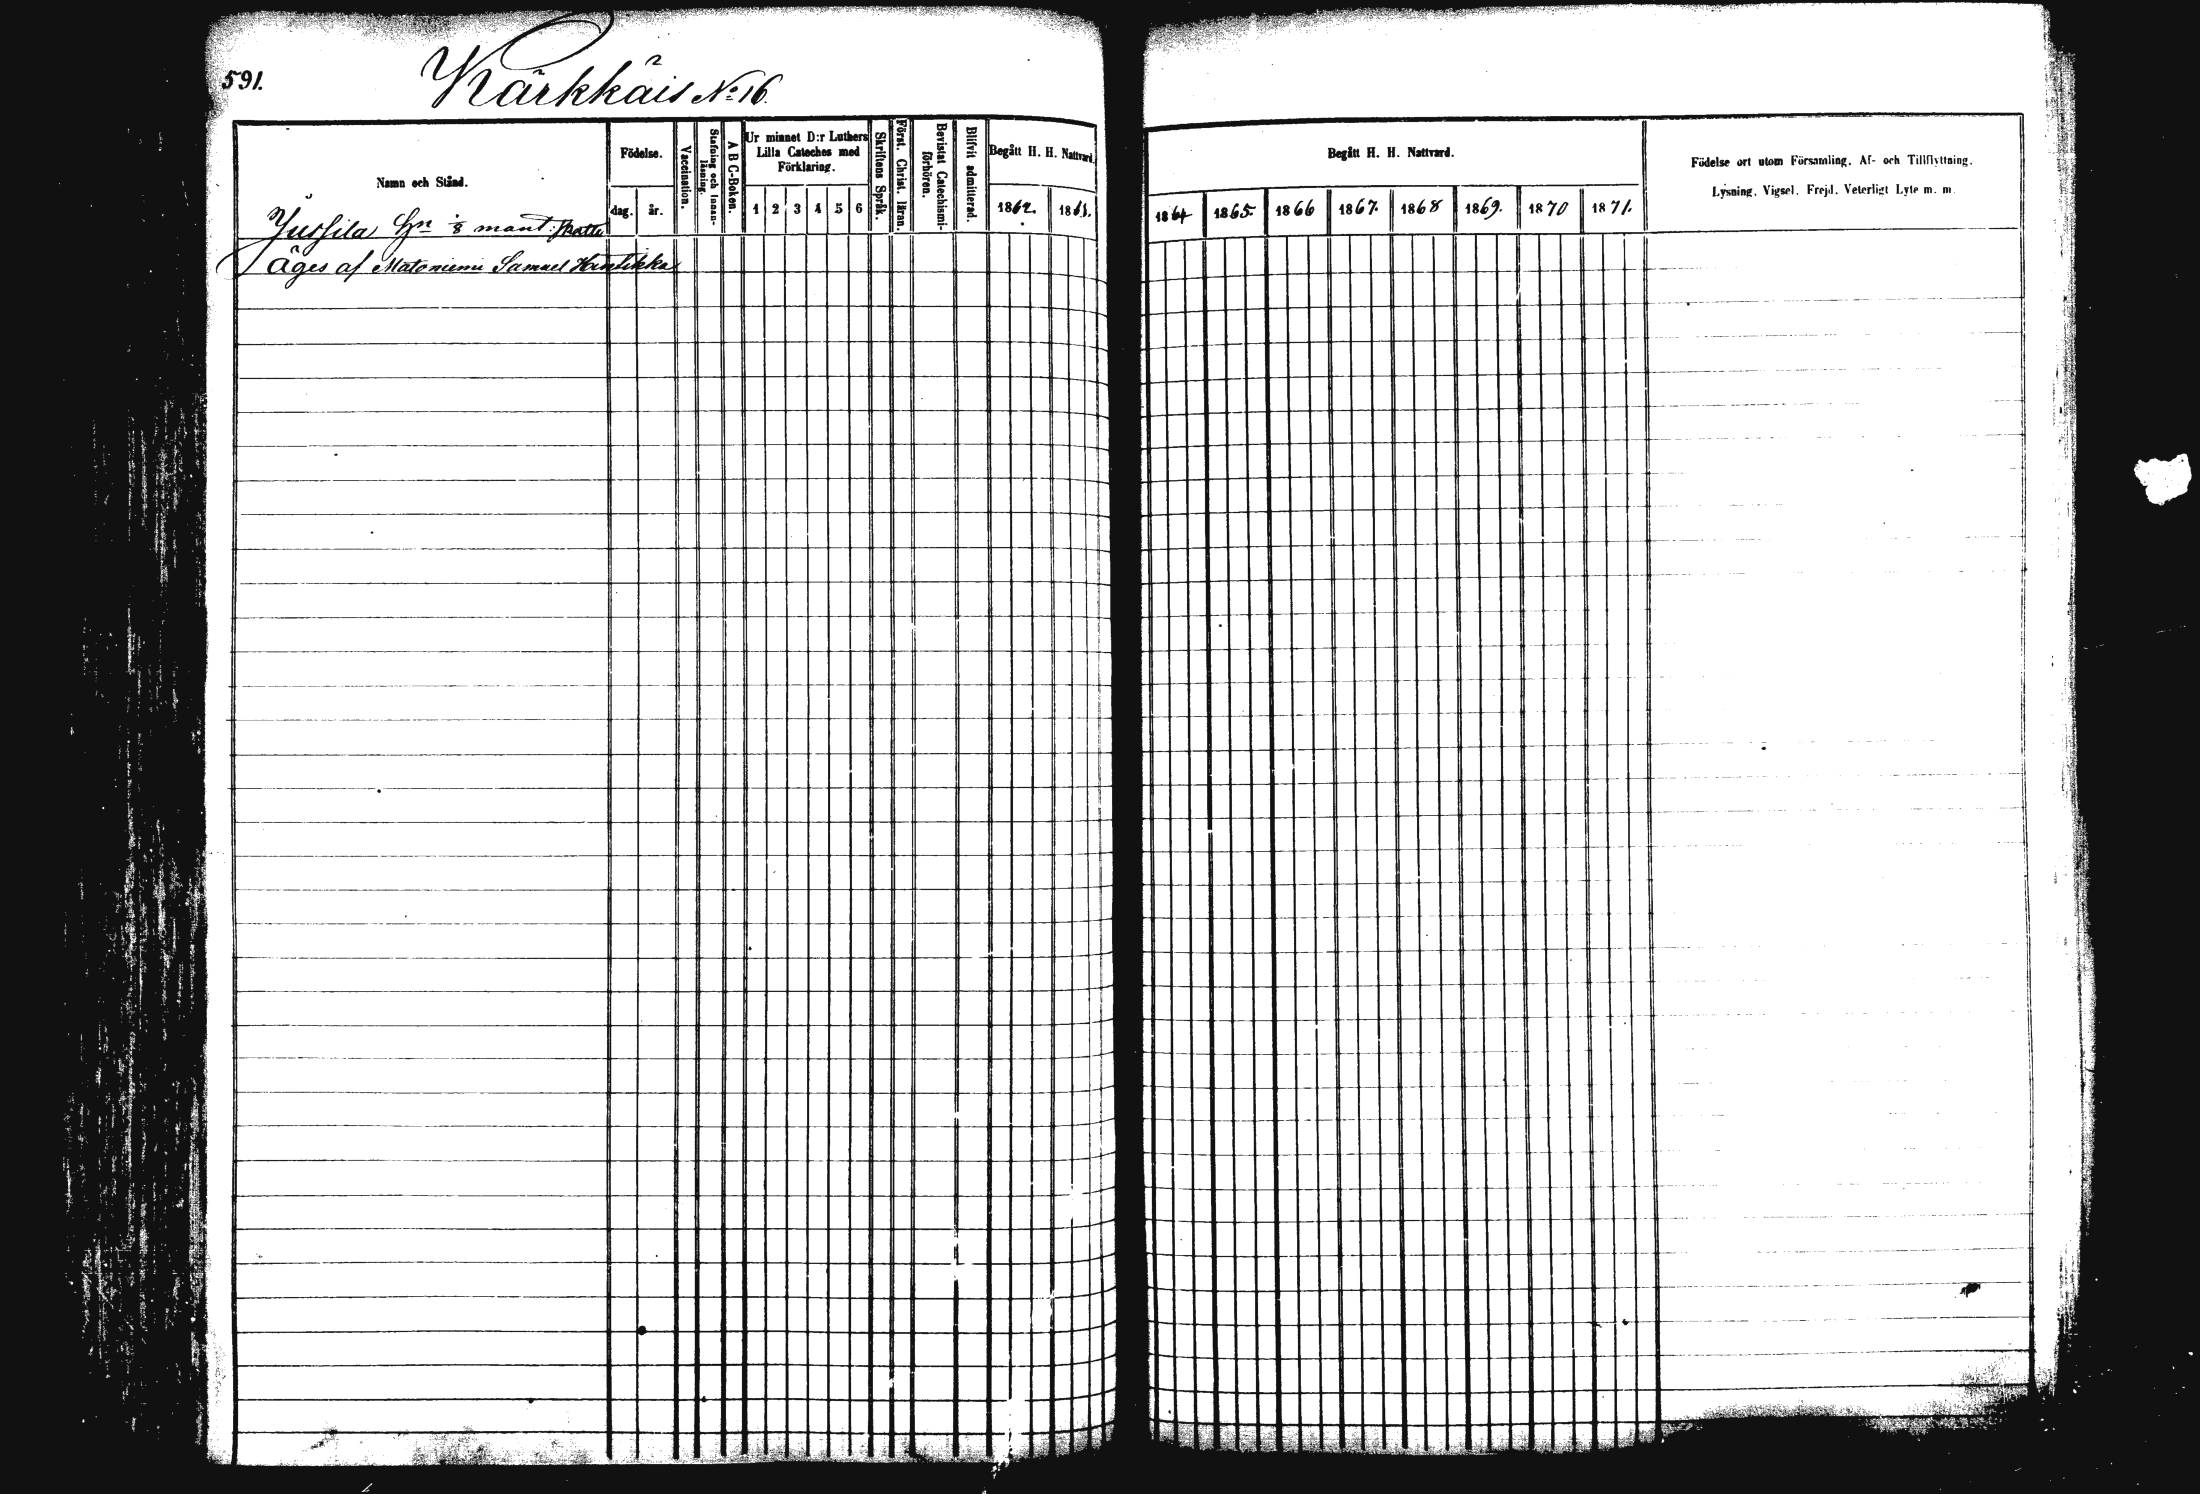 591.
Kärkkäis No 16.
Namn och Stånd.
Födelse.
dag. år.
Vaccination.
Stafning och Innan-
läsning.
A B C-Boken.
Ur minnet D:r Luthers
Lilla Cateches med
Förklaring.
1 2 3 4 5 6
Skriftens Språk.
Först. Christ. läran.
Bevistat Catechismi-
förhören.
Blifvit admitterad.
Begått H. H. Nattvard.
1862. 1863.
Jussila Hn 1/8 mant: skatte
Äges af Matoniemi Samuel Hantikka
Begått H. H. Nattvard.
1864 1865. 1866 1867. 1868 1869. 1870 1871.
Födelse ort utom Församling, Af- och Tillflyttning,
Lysning, Vigsel, Frejd, Veterligt Lyte m. m.